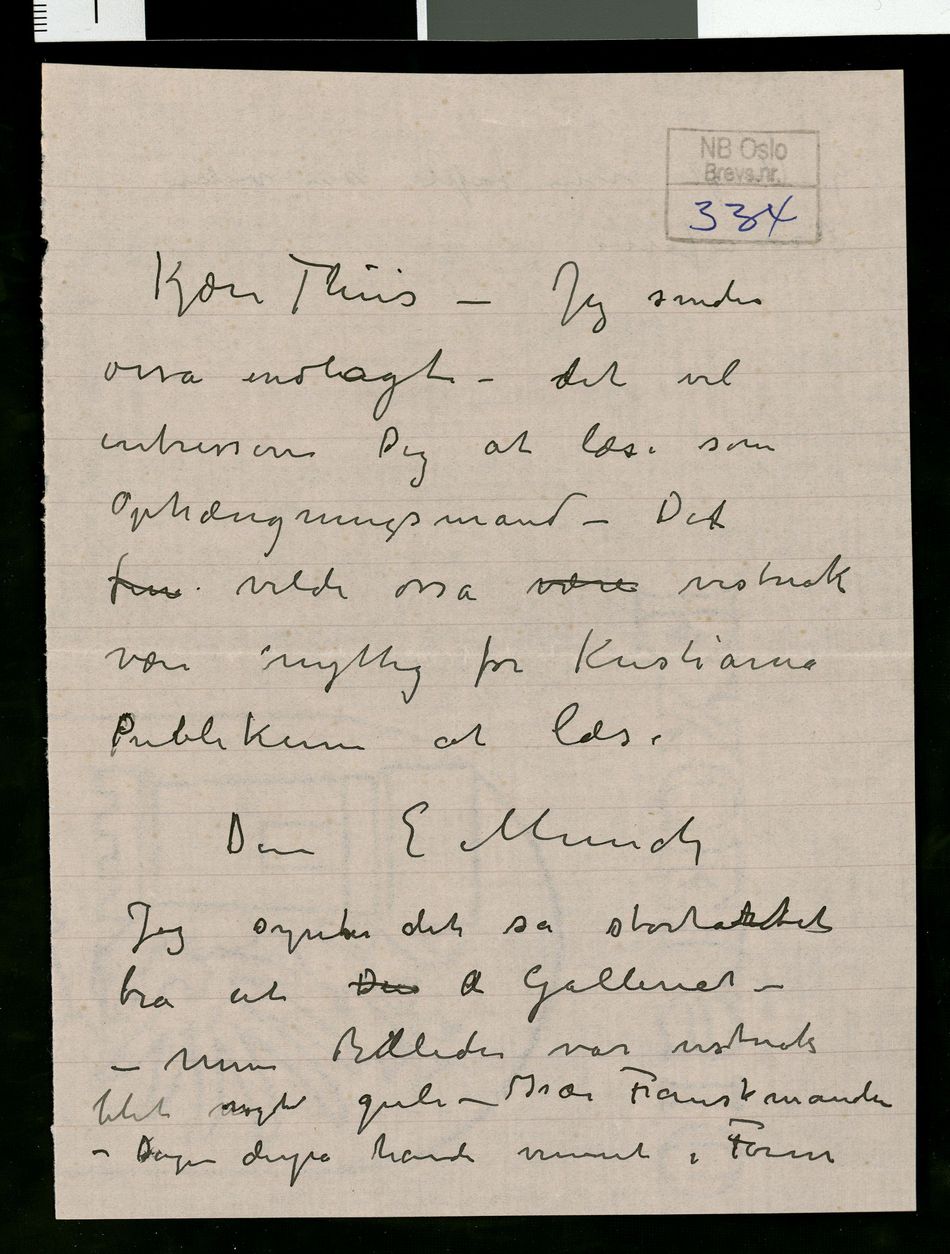 NB Oslo
Brevs.nr.
334
Kjære Thiis – Jeg sender
ossa indlagte – det vil
intressere Dig at læse som
Ophængningsmand – Det
vilde ossa være vistnok
være nyttig for Kristiania
Publikum at læse
Din E Munch
Jeg synes det sa storartet
bra ut Galleriet –
– Mine Billeder var vistnok
blit noget gule – Især Franskmanden
– Dagen derpå havde vundet i Form